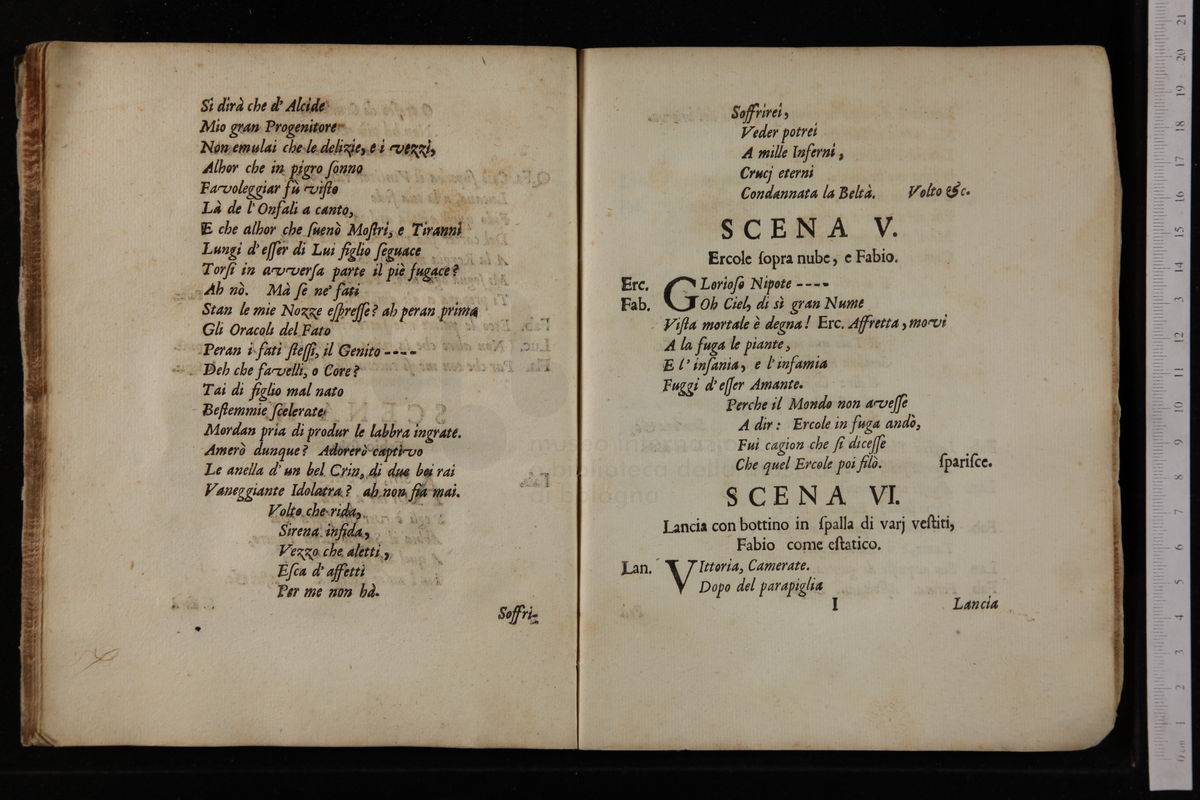 Si dirà che d' Alcide
Mio gran Progenitore
Non emulai che le delizie, e i vezzi,
Alhor che in pigro ſonno
Favoleggiar fù viſto
Là de l'Onfali a canto,
E che alhor che ſuenò Moſtri, e Tiranni
Lungi d'eſſer di Lui figlio ſeguace
Torſi in avverſa parte il piè fugace?
Ah nò. Mà ſe ne' fati
Stan le mie Nozze eſpreſſe? ah peran prima
Gli Oracoli del Fato
Peran i fati ſteſſi, il Genito ----
Deh che favelli, o Core?
Tai di figlio mal nato
Beſtemmie ſcelerate
Mordan pria di produr le labbra ingrate.
Amerò dunque? Adorerò captivo
Le anella d'un bel Crin, di due bei rai
Vaneggiante Idolatra? ah non fia mai.
Volto che rida,
Sirena infida,
Vezzo che aletti,
Eſca d'affetti
Per me non hà.
Soffri-
Soffrirei,
Veder potrei
A mille Inferni,
Crucj eterni
Condannata la Beltà. Volto &c.
SCENA V.
Ercole ſopra nube, e Fabio.
Erc. GLorioſo Nipote ----
Fab. Oh Ciel, di sì gran Nume
Viſta mortale è degna! Erc. Affretta, movi
A la fuga le piante,
E l'inſania, e l'infamia
Fuggi d'eſſer Amante.
Perche il Mondo non aveſſe
A dir: Ercole in fuga andò,
Fui cagion che ſi diceſſe
Che quel Ercole poi filò. ſpariſce.
SCENA VI.
Lancia con bottino in ſpalla di varj veſtiti,
Fabio come eſtatico.
Lan. VIttoria, Camerate.
Dopo del parapiglia
I Lancia